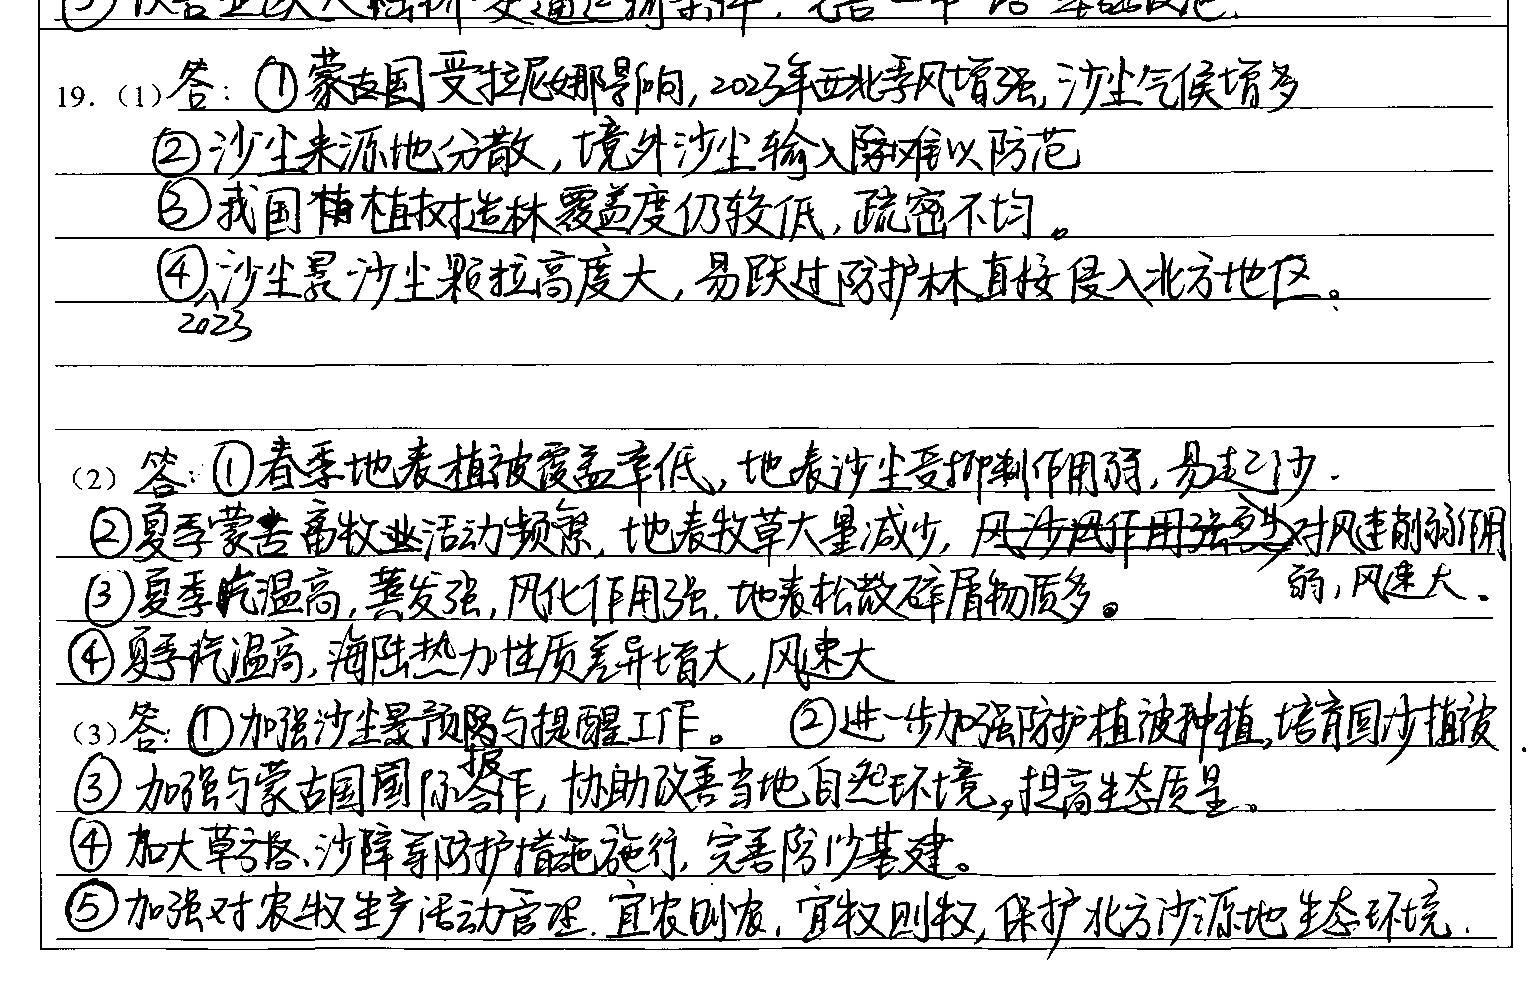 19.（1）答：①蒙古国受拉尼娜影响，2023年西北季风增强，沙尘气候增多
②沙尘来源地分散，境外沙尘输入难以防范
③我国植树造林覆盖度仍较低，疏密不均。
④2023沙尘暴沙尘颗粒高度大，易跃过防护林直接侵入北方地区。
（2）答：①春季地表植被覆盖率低，地表沙尘受抑制作用弱，易起沙.
②夏季蒙古畜牧业活动频繁，地表牧草大量减少，对风速削弱作用
弱，风速大.
③夏季气温高，蒸发强，风化作用强.地表松散碎屑物质多。
④夏季气温高，海陆热力性质差异增大，风速大
（3）答：①加强沙尘暴预报与提醒工作。 ②进一步加强防护植被种植，培育固沙植被
③加强与蒙古国国际合作，协助改善当地自然环境，提高生态质量。
④加大草方格、沙障等防护措施施行，完善防沙基建。
⑤加强对农牧生产活动管理.宜农则农，宜牧则牧，保护北方沙源地生态环境.